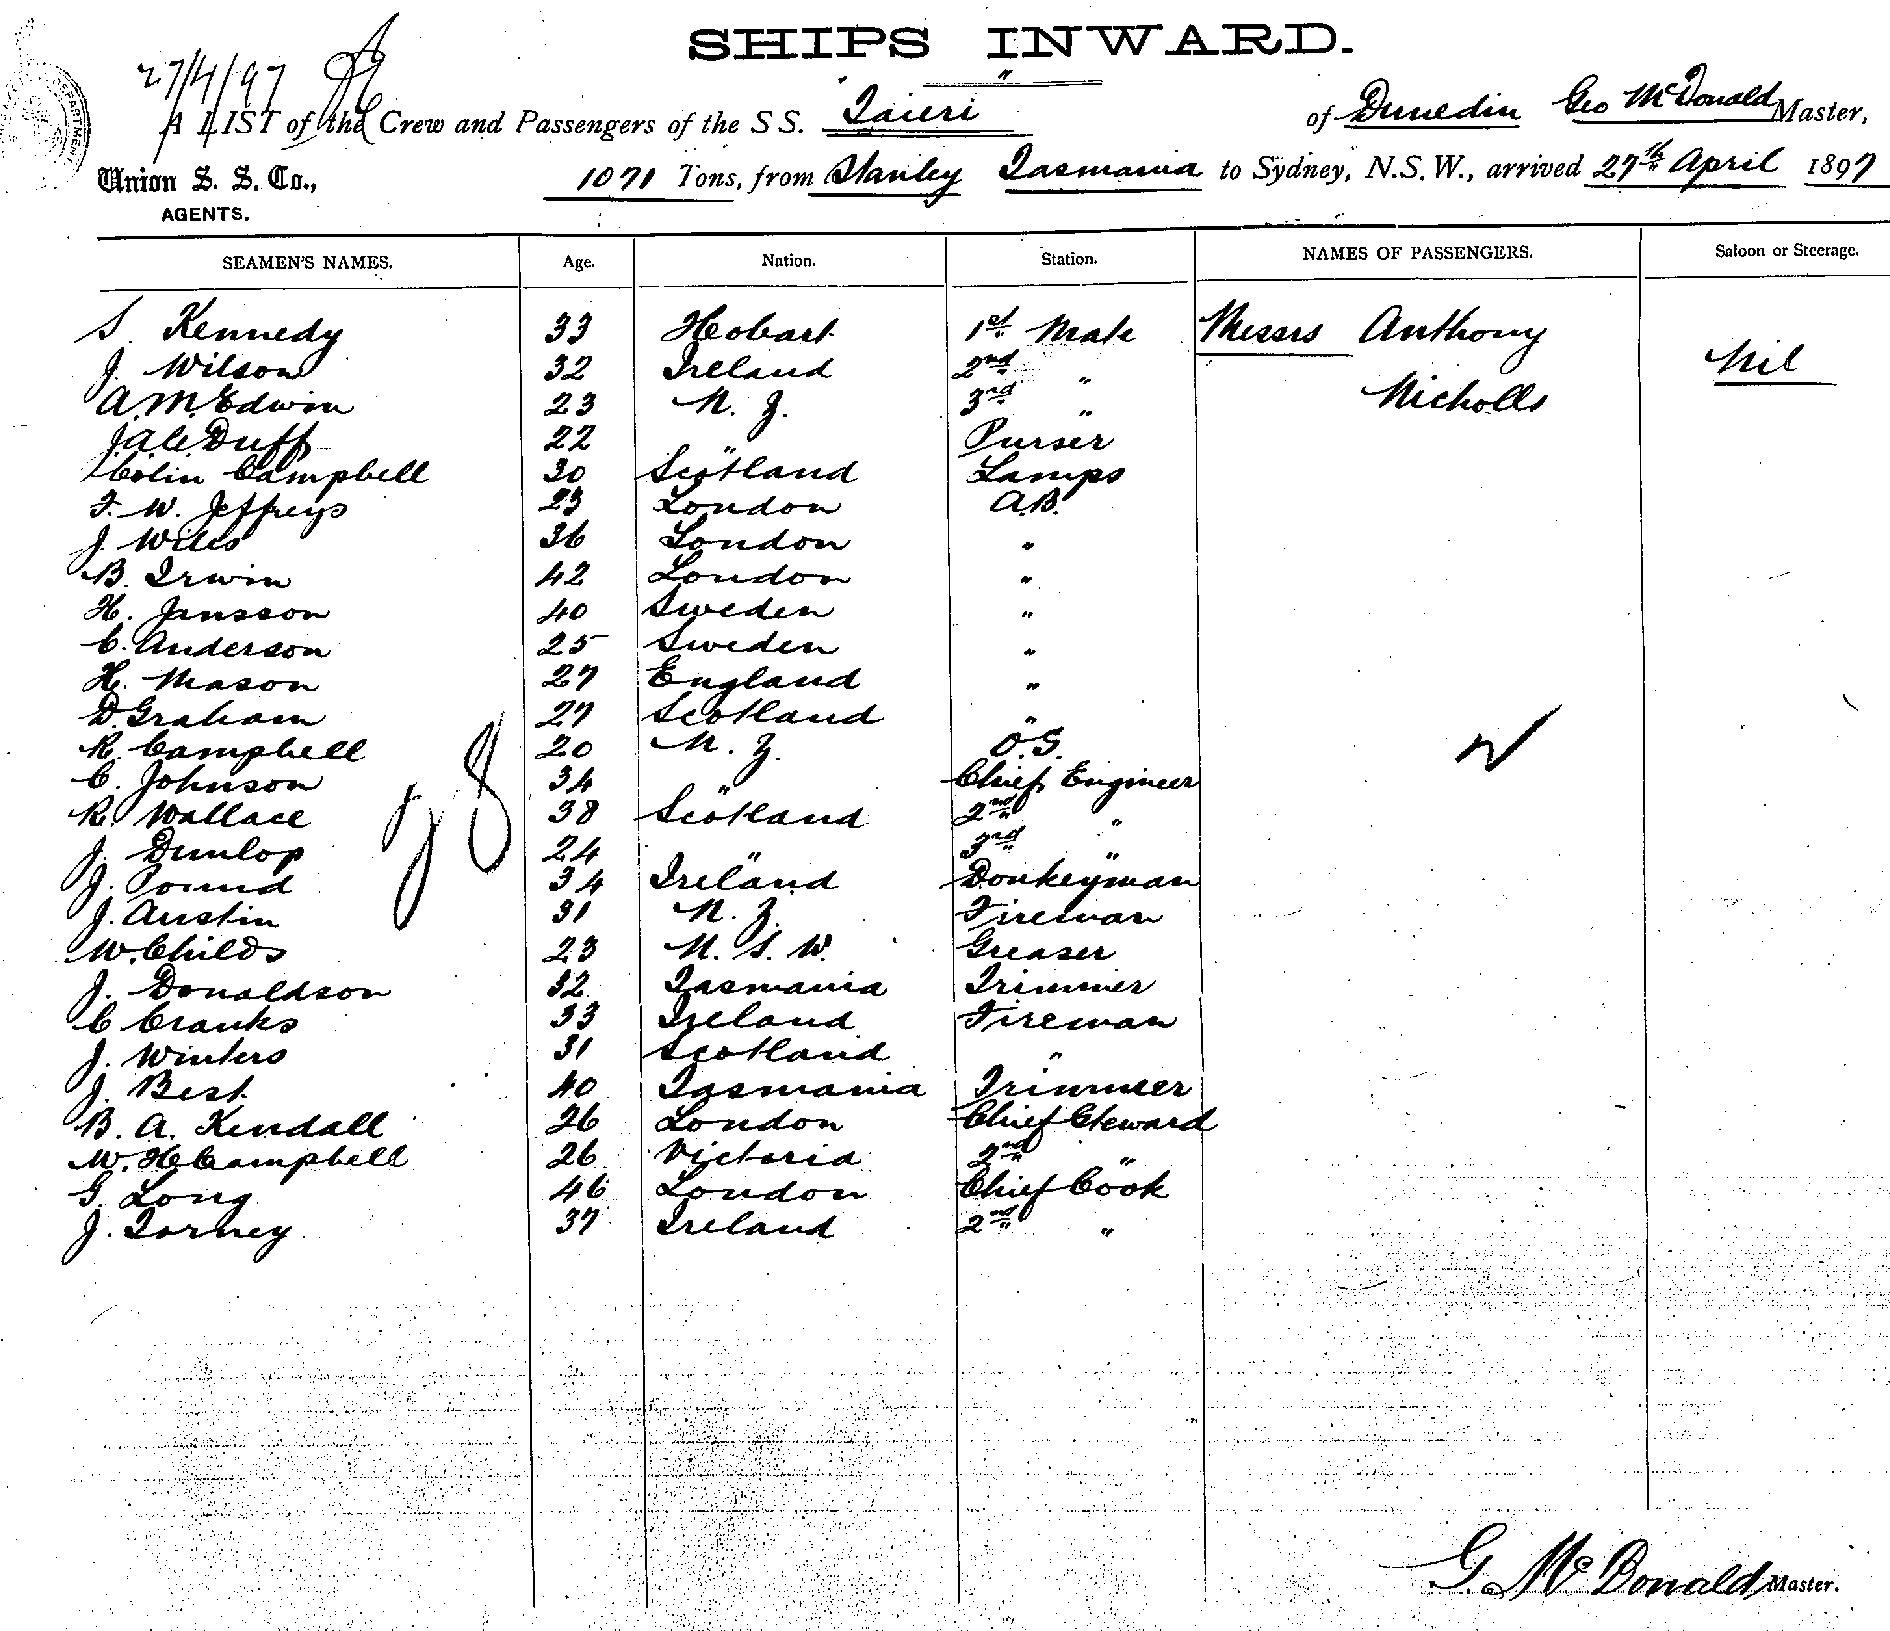 SHIPS INWARD.
27/4/97
A LIST of the Crew and Passengers of the S S. Taieri of Dunedin Geo McDonald Master,
Union S. S. Co., 1071 Tons, from Stanley Tasmania to Sydney, N.S.W., arrived 27th April 1897
AGENTS.
SEAMEN'S NAMES. Age. Nation. Station. NAMES OF PASSENGERS. Saloon or Steerage.
S. Kennedy 33 Hobart 1st Mate Messrs Anthony
J. Wilson 32 Ireland 2nd " Nil
A.M. Edwin 23 N. Z. 3rd " Nicholls
Duff 22 " Purser
Colin Campbell 30 Scotland Lamps
F. W. Jeffreys 23 London A.B.
J. Wiles 36 London "
B. Irwin 42 London "
H. Jansson 40 Sweden "
C. Anderson 25 Sweden "
H. Mason 27 England "
D. Graham 27 Scotland "
R. Campbell 20 N. Z. O.S.
C. Johnson 34 " Chief Engineer
R. Wallace 38 Scotland 2nd "
J. Dunlop 24 " 3rd "
J. Pound 34 Ireland Donkeyman
J. Austin 31 N. Z. Fireman
W. Childs 23 N. S. W. Greaser
J. Donaldson 32 Tasmania Trimmer
C Cranks 33 Ireland Fireman
J. Winters 31 Scotland "
J. Best 40 Tasmania Trimmer
B. A. Kendall 26 London Chief Steward
W. H Campbell 26 Victoria 2nd "
G. Long 46 London Chief Cook
J. Torney 37 Ireland 2nd "
G. McDonald Master.